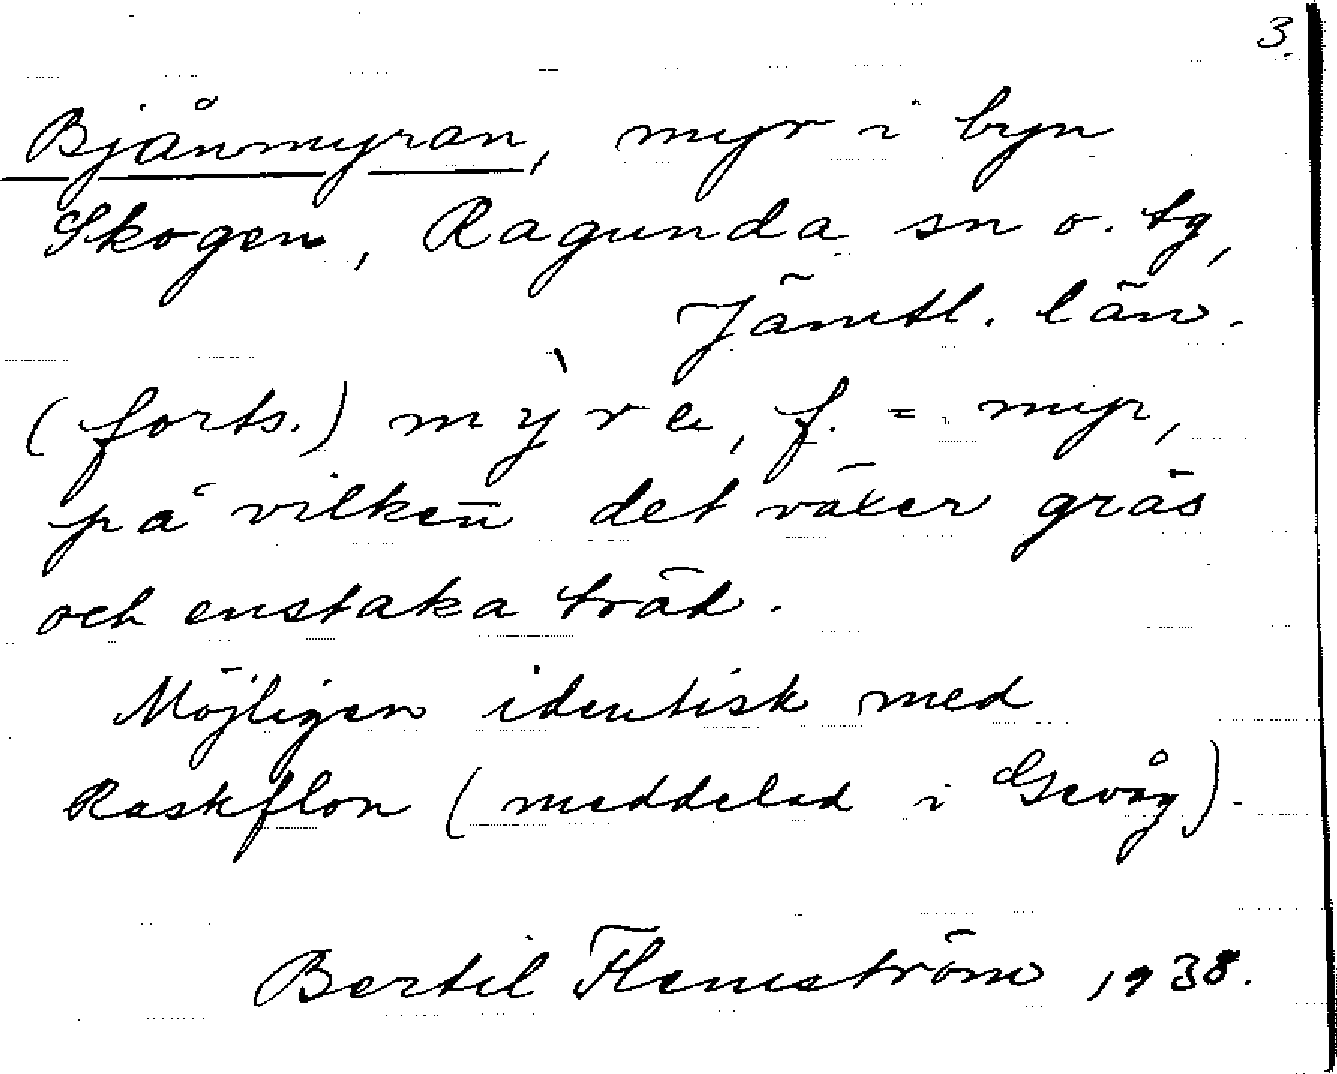 3.
Bjånmyran, myr i byn
Skogen, Ragunda sn o. tg,
Jämtl. län.
(forts.) mỳra, f. = myr,
på vilken det växer gräs
och enstaka träd.
Möjligen identisk med
Raskflon (meddelad i Gevåg).
Bertil Flemström 1938.